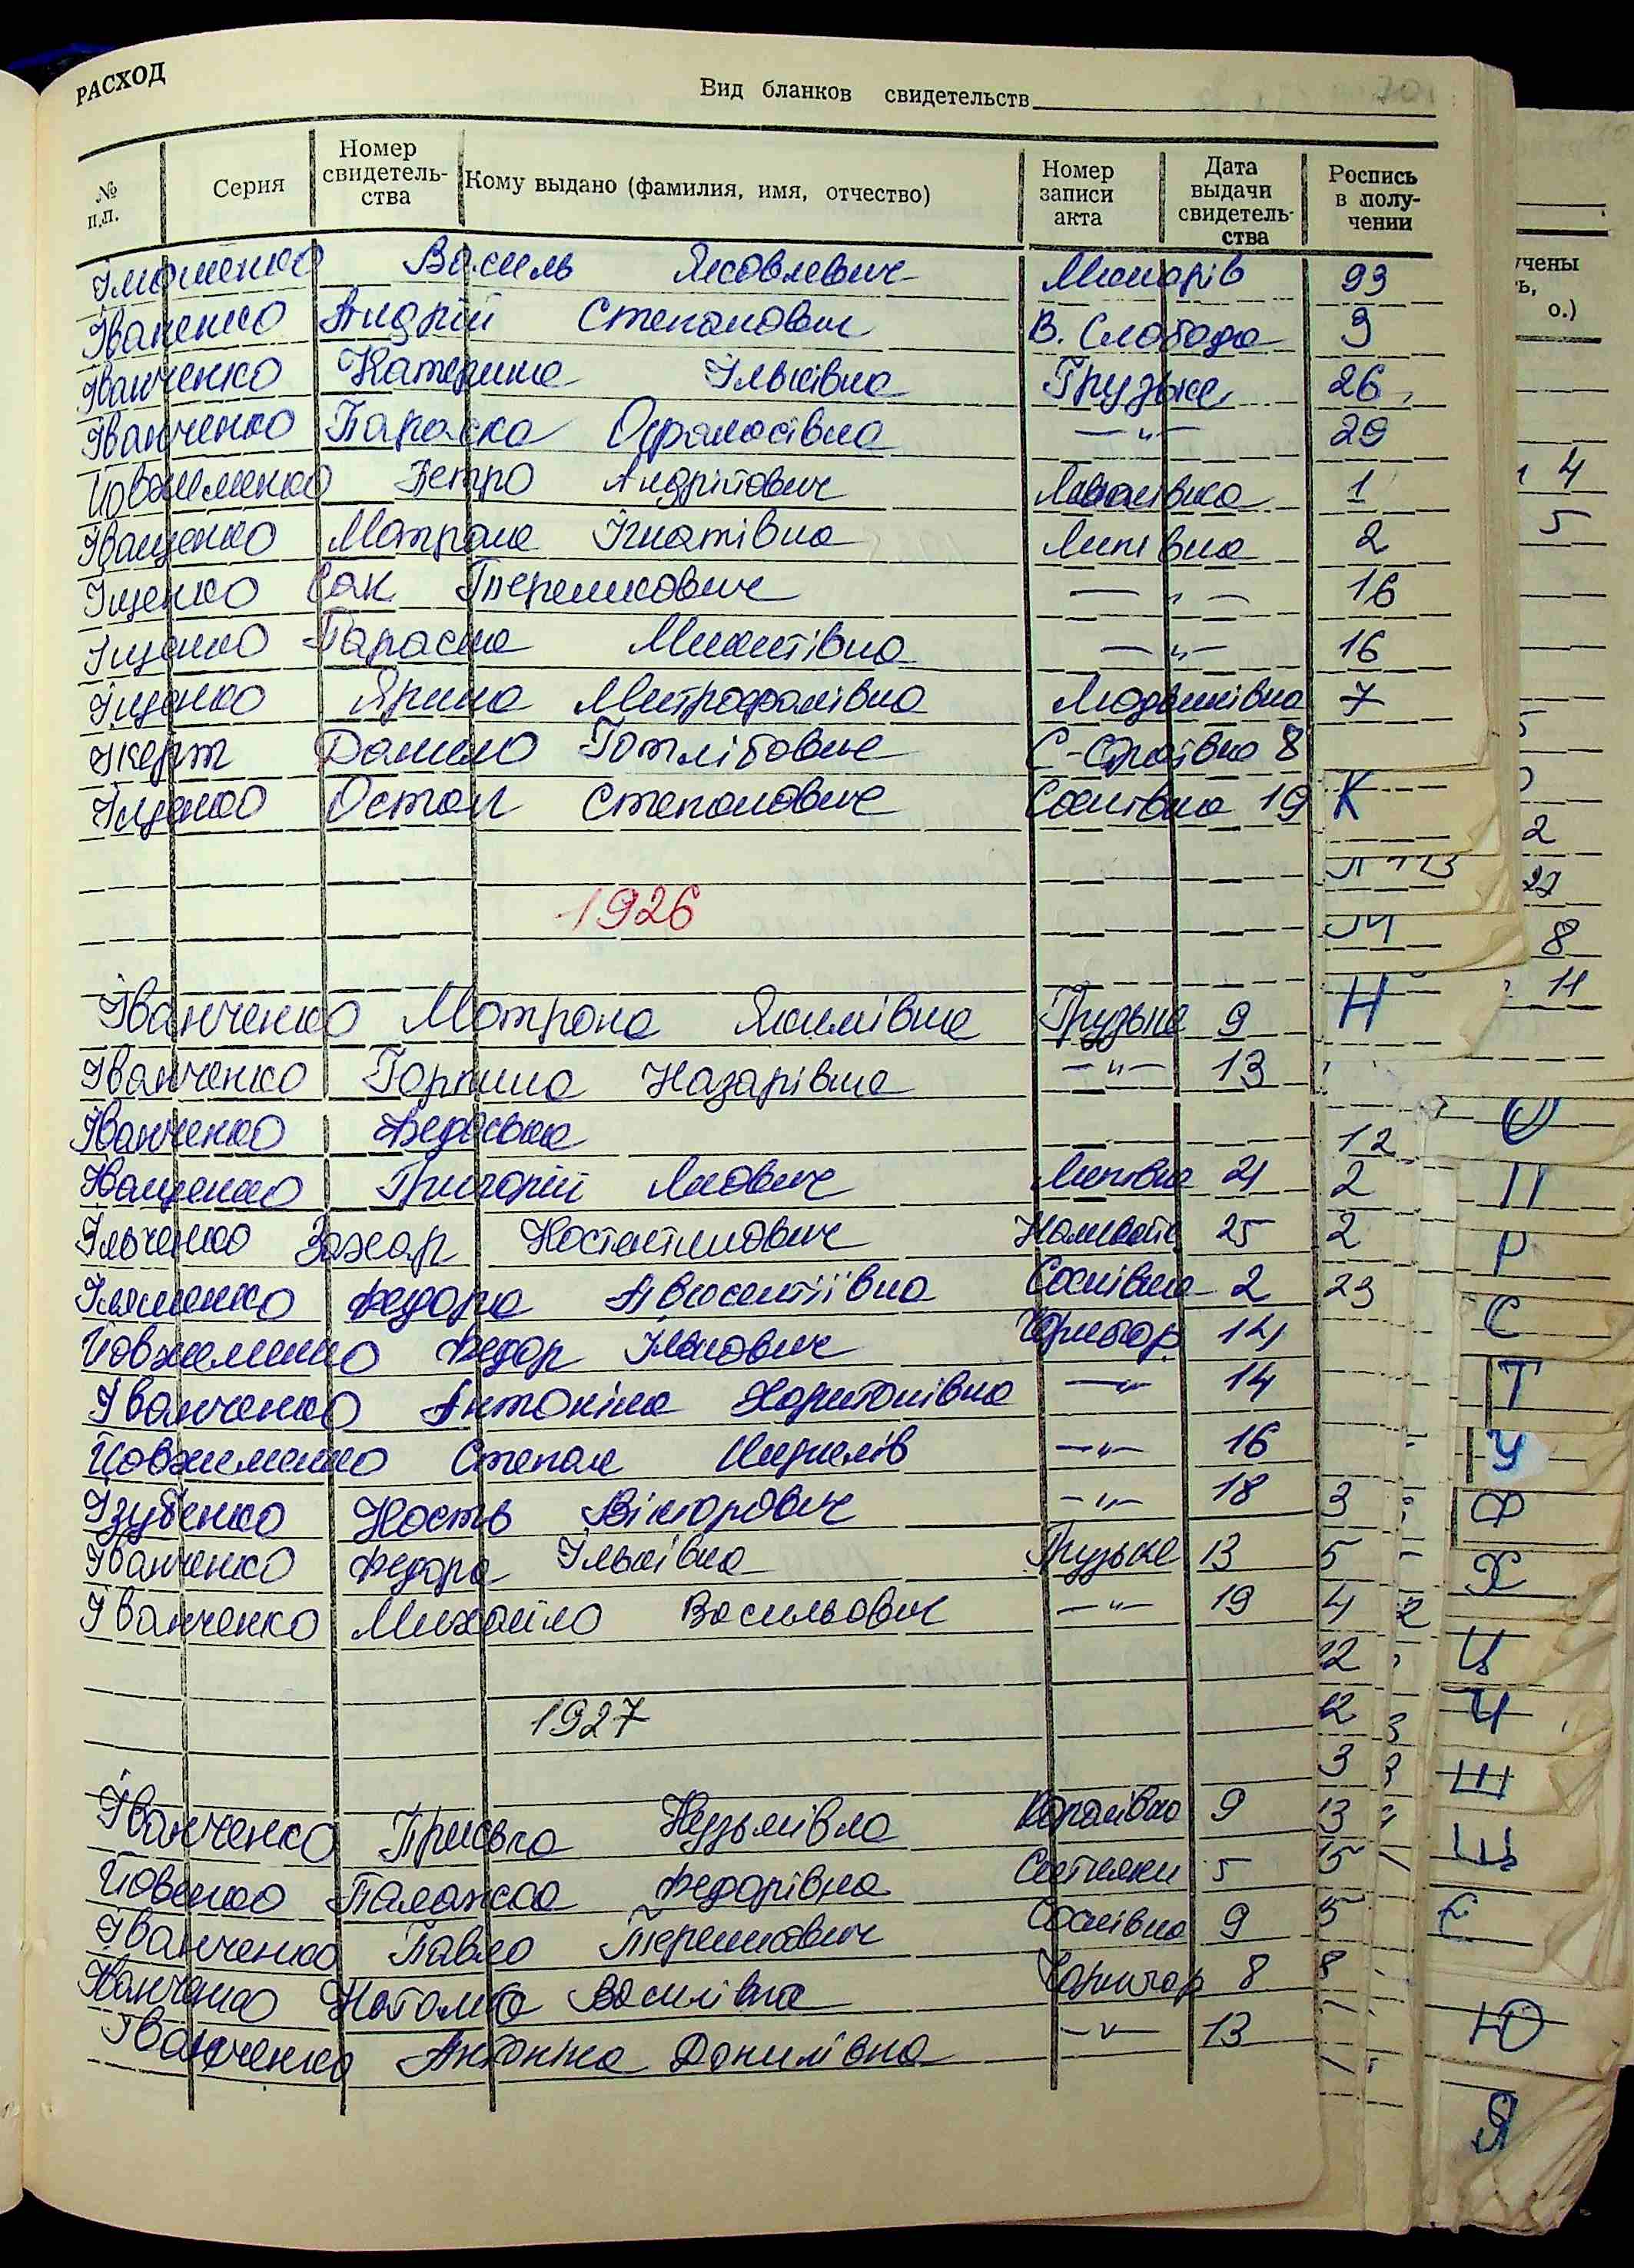 РАСХОД
Вид бланков свидетельств
№ п.п. Серия Номер свидетель-ства Кому выдано (фамилия, имя, отчество) Номер записи акта Дата выдачи свидетель-ства Роспись в полу-чении
Василь Яковлевич Макарів 93
Іваненко Андрій Степанович В. Слобода 3
Іванченко Катерина Ільківна Грузьке 26
Іванченко Параска Опанасівна —"— 29
Йовжименко Петро Андрійович 1
Іващенко Мотрона Ігнатівна Липівка 2
Іщенко Сак Терешкович —"— 16
Іщенко Параска Микитівна —"— 16
Іщенко Ярина Митрофанівна Людвинівка 7
Ікерт Данило Готлібович 8
Іщенко Остап Степанович Соснівка 19
1926
Іванченко Мотрона Якимівна Грузьке 9
Іванченко Горпина Назарівна —"— 13
Іванченко Федоська
Іващенко Григорій Липівка 21
Ільченко Захар Костянтинович 25
Федора Авксентіївна Соснівка 2
Йовжименко Федор Ількович 14
Іванченко Антоніна Харитонівна —"— 14
Йовжименко Степан —"— 16
Ізубенко Кость Вікторович —"— 18
Іванченко Федора Ільківна Грузьке 13
Іванченко Михайло Васильович —"— 19
1927
Іванченко Приська Кузьмівна 9
Йовенко Палажка Федорівна Ситняки 5
Іванченко Павло Терешкович Соснівка 9
Іванченко Наталка Василівна 8
Іванченко Антоніна Данилівна —"— 13
К
Л
М
Н
О
П
Р
С
Т
У
Ф
Х
Ц
Ч
Ш
Щ
Є
Ю
Я